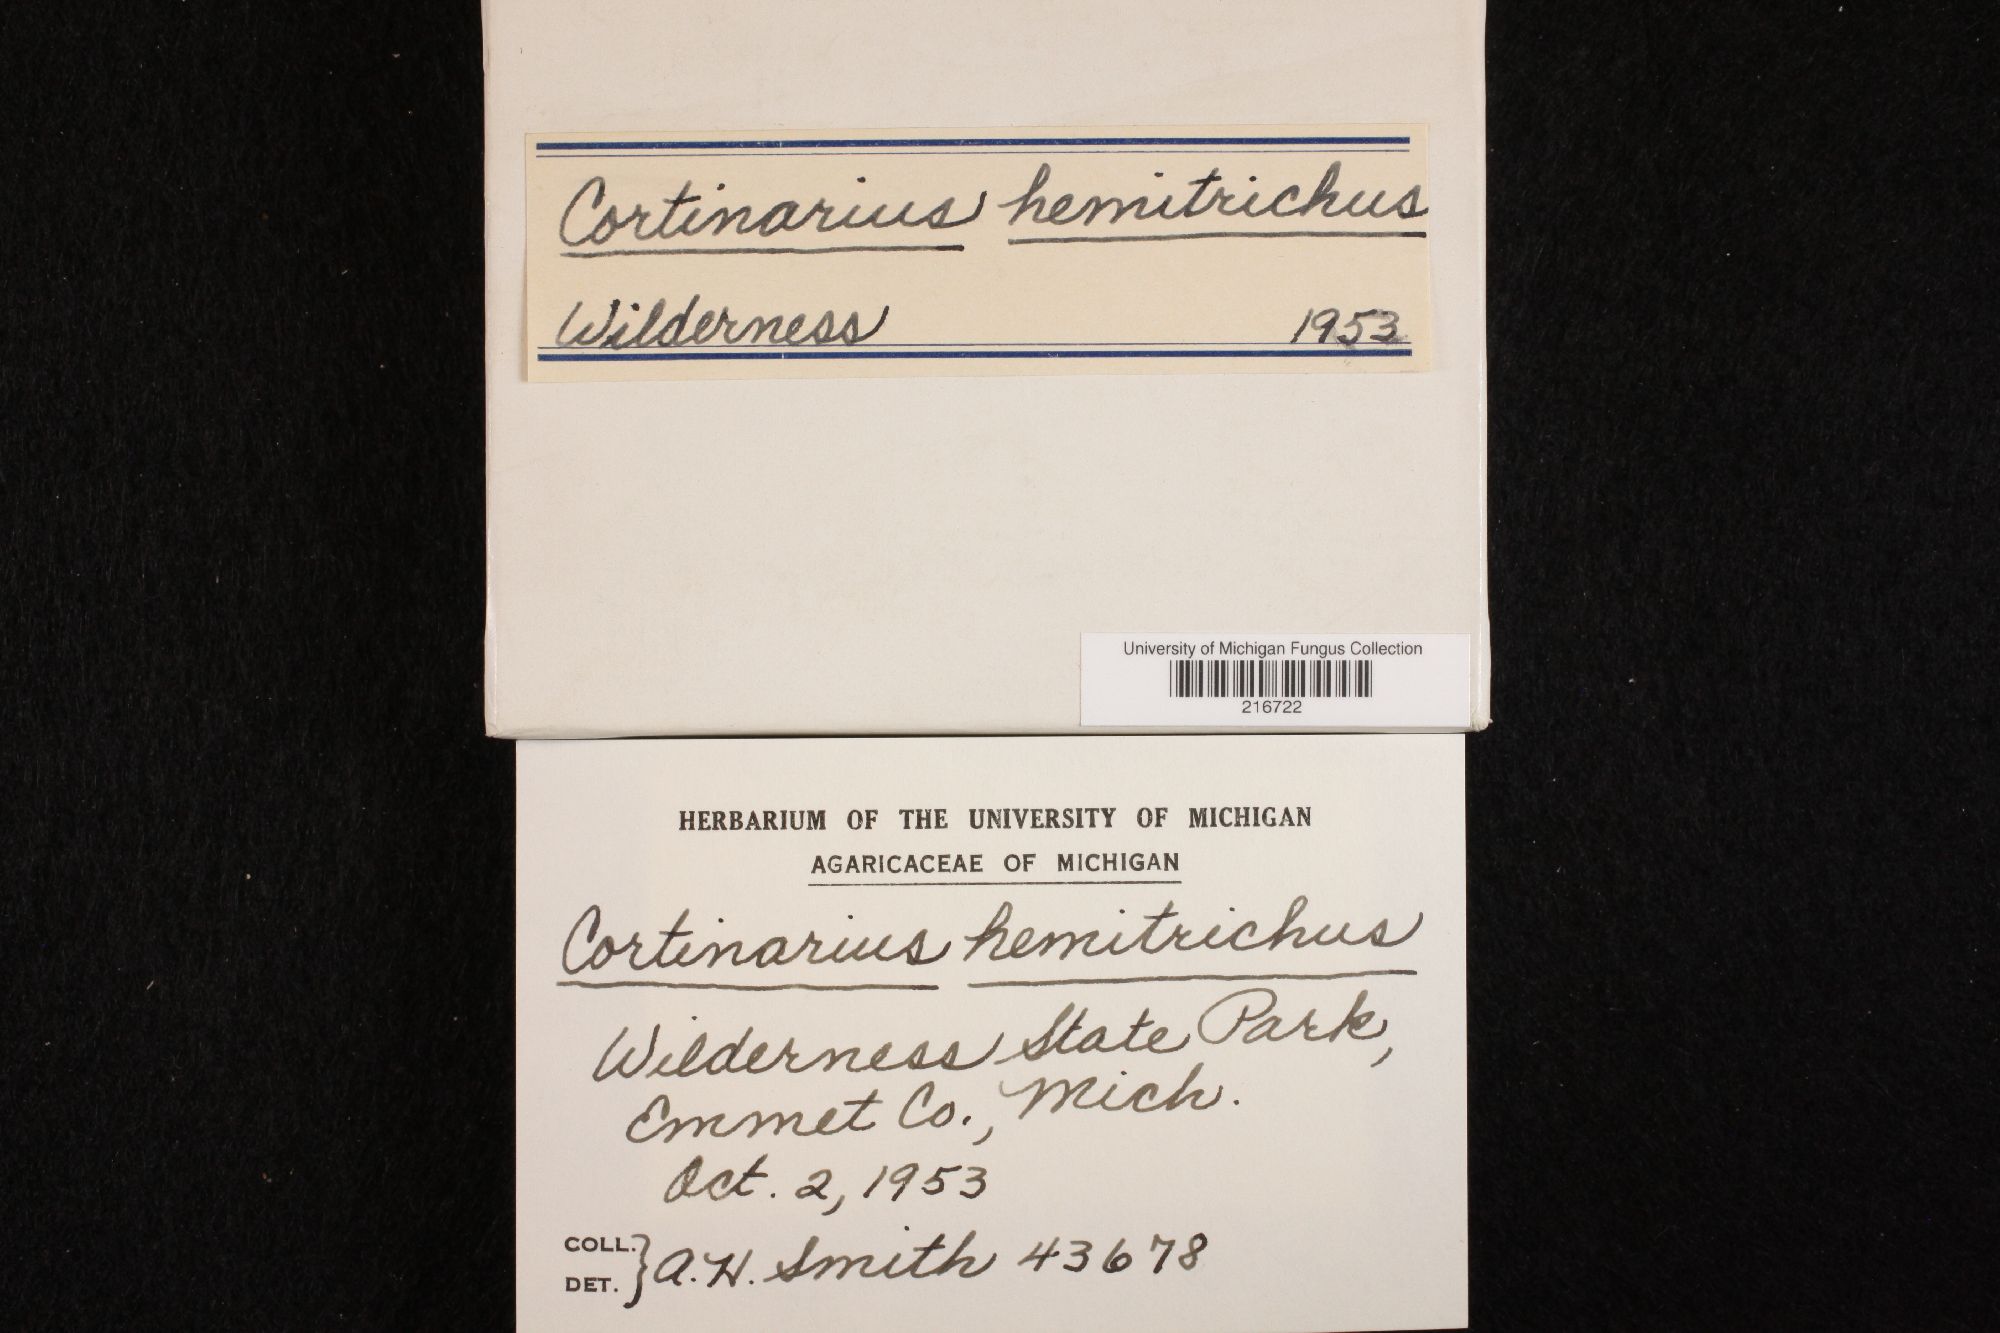 Cortinarius hemitrichus
Wilderness 1953
University of Michigan Fungus Collection
216722
HERBARIUM OF THE UNIVERSITY OF MICHIGAN
AGARICACEAE OF MICHIGAN
Cortinarius hemitrichus
Wilderness State Park,
Emmet Co., Mich.
Oct. 2, 1953
COLL. } A. H. Smith 43678
DET.